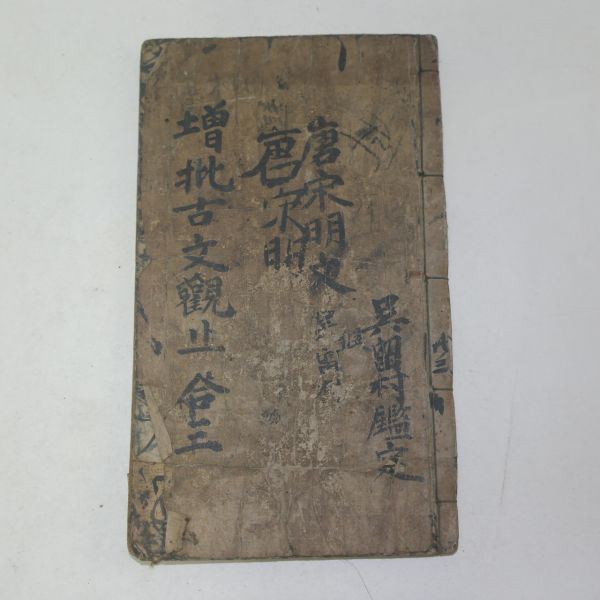 吳留村鑑定
唐宋明文
唐宋明
增批古文觀止 合三